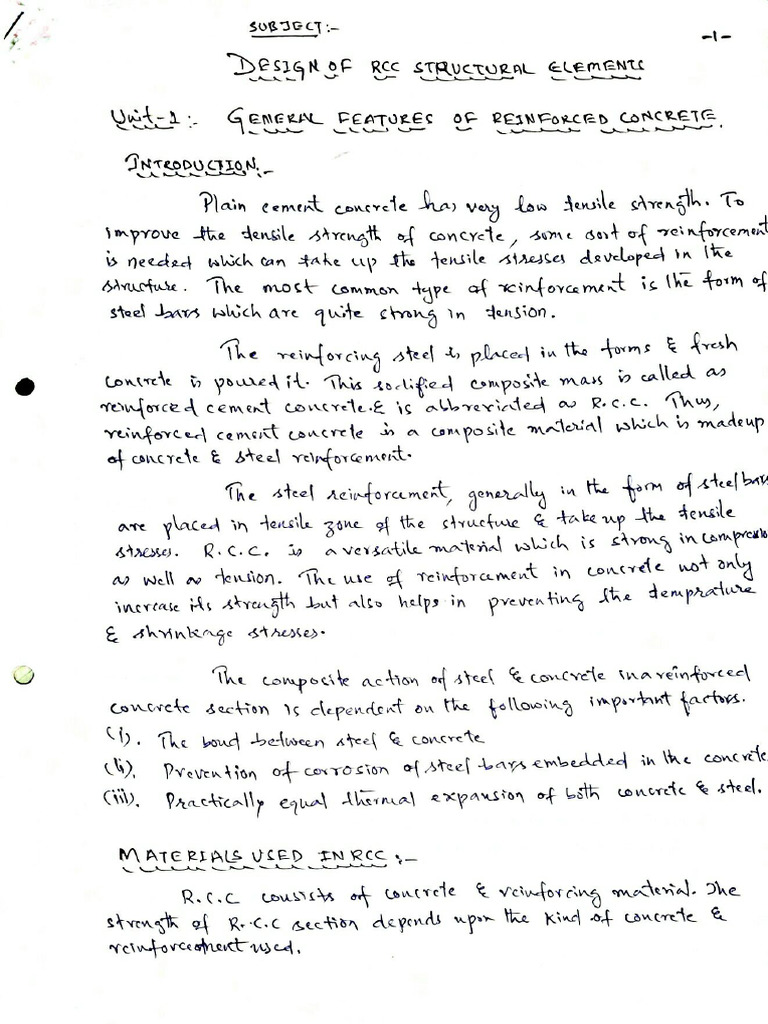 SUBJECT:-
-1-
DESIGN OF RCC STRUCTURAL ELEMENTS
Unit-1:- GENERAL FEATURES OF REINFORCED CONCRETE.
INTRODUCTION:-
Plain cement concrete has very low tensile strength. To
improve the tensile strength of concrete, some sort of reinforcement
is needed which can take up the tensile stresses developed in the
structure. The most common type of reinforcement is the form of
steel bars which are quite strong in tension.
The reinforcing steel is placed in the forms & fresh
concrete is poured it. This soclified composite mass is called as
reinforced cement concrete.& is abbreviated as R.C.C. Thus,
reinforced cement concrete is a composite material which is madeup
of concrete & steel reinforcement.
The steel reinforcement, generally in the form of steel bars
are placed in tensile zone of the structure & take up the tensile
stresses. R.C.C. is a versatile material which is strong in compressio
as well as tension. The use of reinforcement in concrete not only
increase its strength but also helps in preventing the temprature
& shrinkage stresses.
The composite action of steel & concrete in a reinforced
concrete section is dependent on the following important factors.
(i). The bond between steel & concrete
(ii). Prevention of corrosion of steel bars embedded in the concrete
(iii). Practically equal thermal expansion of both concrete & steel.
MATERIALS USED IN RCC :-
R.C.C consists of concrete & reinforcing material. The
strength of R.C.C section depends upon the kind of concrete &
reinforcement used.